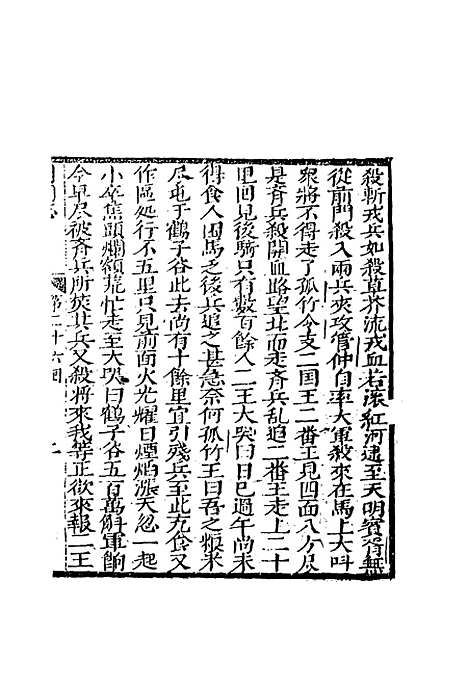 殺斬戎兵如殺草芥流戎血若滾紅河連至天明賓胥無
從前門殺入兩兵夾攻管仲自率大軍殺來在馬上大叫
衆將不得走了孤竹令支二国王二番王見四面八方尽
是斉兵殺開血路望北而走斉兵乱追二番王走上二十
里回見後騎只有数百餘人二王大哭曰日已過午尚未
得食人困馬乏後兵追之甚急奈何孤竹王曰吾之粮米
尽屯于鶴子谷此去尚有十餘里宜引残兵至此充食又
作區処行不五里只見前面火光耀日煙焰漲天忽一起
小卒焦頭爛額荒忙走至大哭曰鶴子谷五百萬觧軍餉
今早尽被斉兵所焚其兵又殺将來我等正欲來報二王
国志
第二十六回